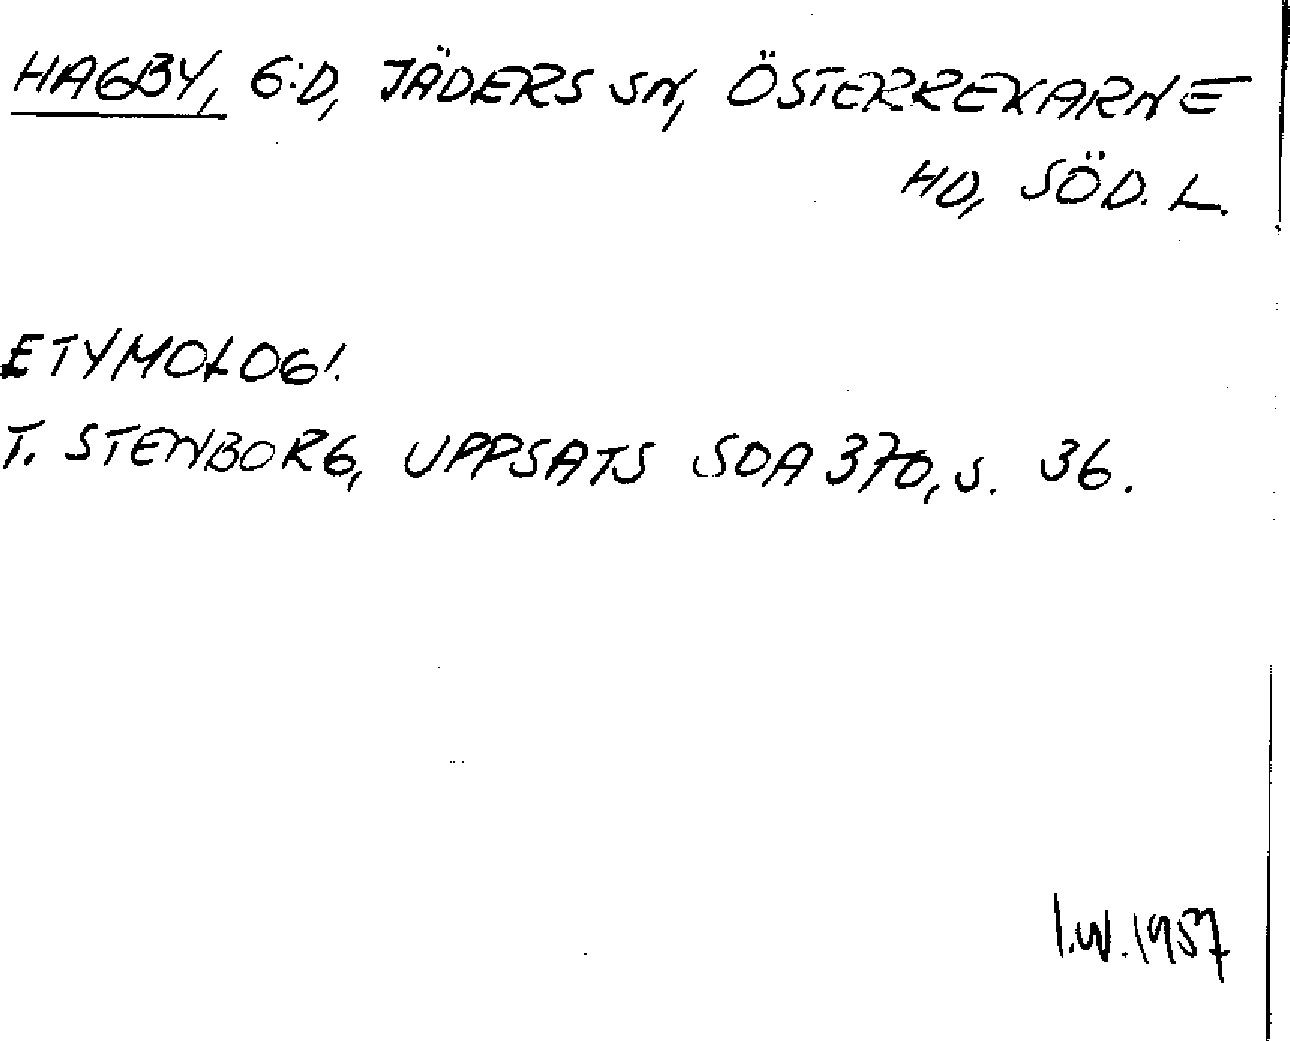 HAGBY, G:D, JÄDERS SN, ÖSTERREKARNE
HD, SÖD. L.
ETYMOLOGI.
T. STENBORG, UPPSATS SOA 370, S. 36.
I.W. 1957